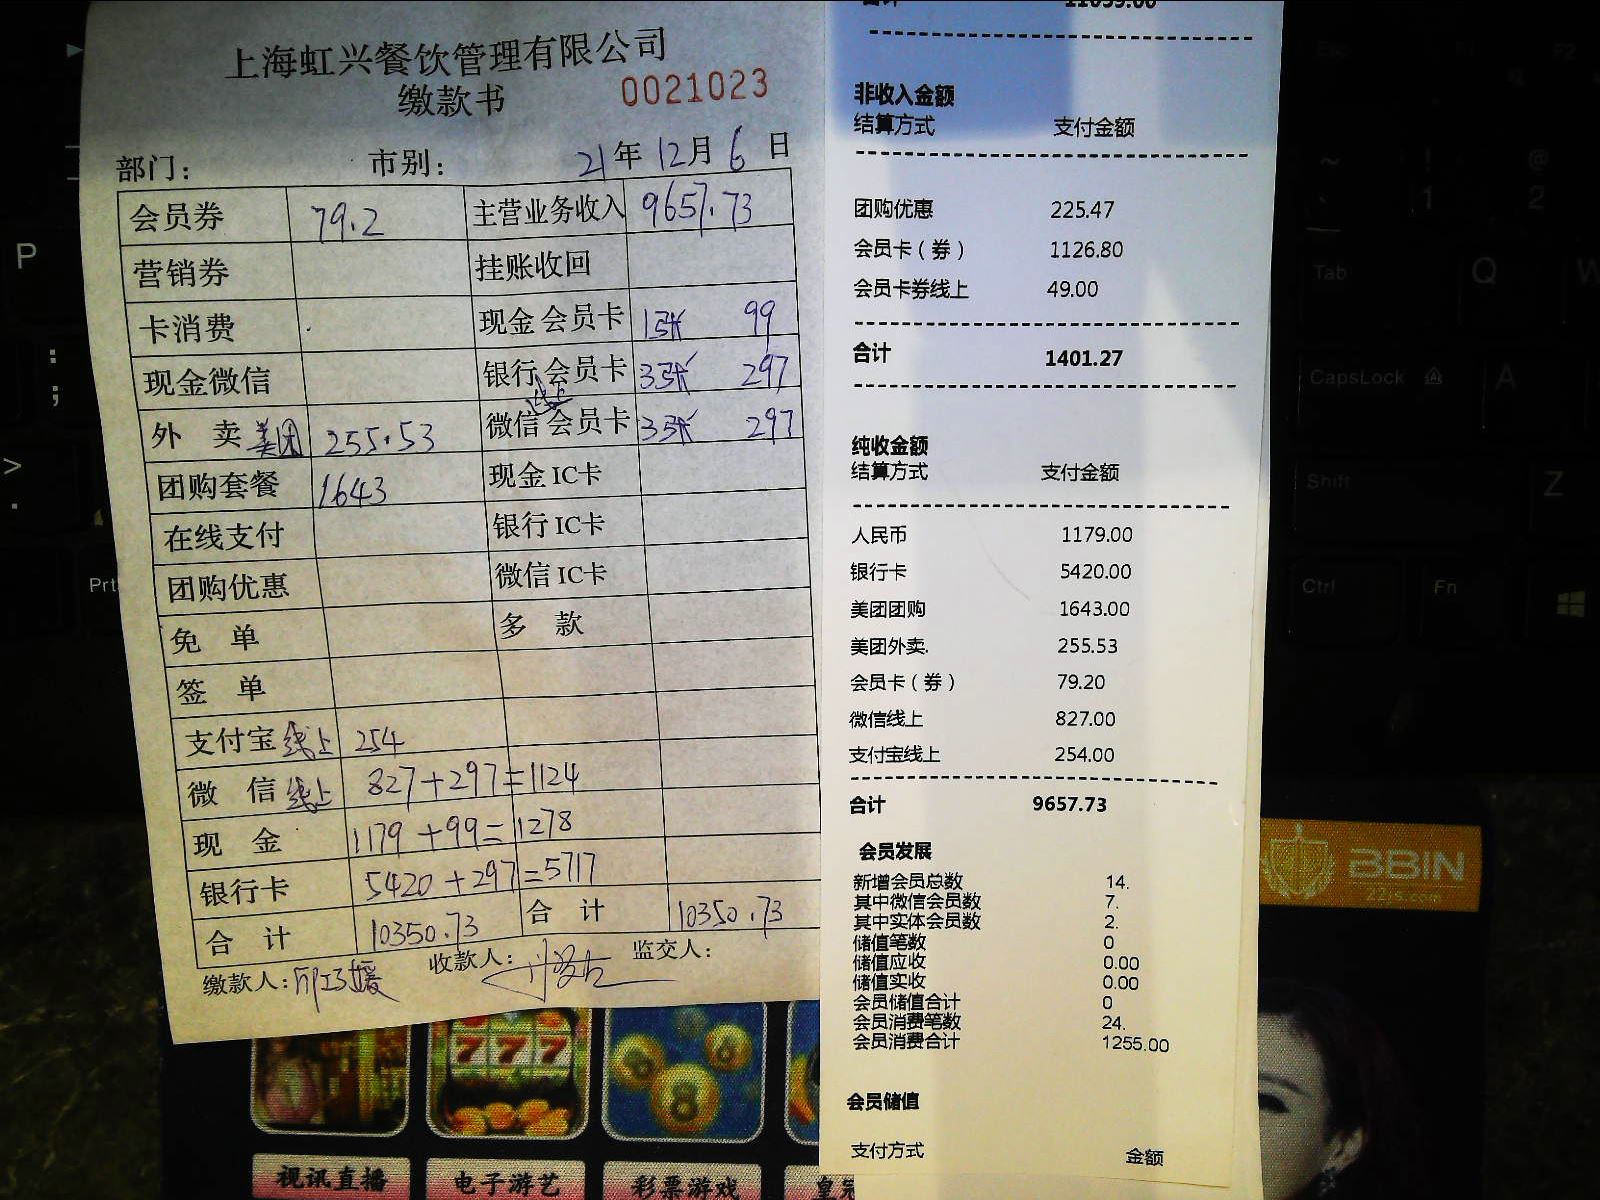 上海虹兴餐饮管理有限公司
缴款书 0021023
部门： 市别： 21年12月6日
会员券 79.2 主营业务收入 9657.73
营销券 挂账收回
卡消费 现金会员卡 1张 99
现金微信 银行会员卡 3张 297
外 卖 美团 255.53 微信线上会员卡 3张 297
团购套餐 1643 现金IC卡
在线支付 银行IC卡
团购优惠 微信IC卡
免 单 多 款
签 单
支付宝线上 254
微 信线上 827+297=1124
现 金 1179+99=1278
银行卡 5420+297=5717
合 计 10350.73 合 计 10350.73
缴款人： 收款人： 监交人：
合计 11059.00
非收入金额
结算方式 支付金额
团购优惠 225.47
会员卡（券） 1126.80
会员卡券线上 49.00
合计 1401.27
纯收金额
结算方式 支付金额
人民币 1179.00
银行卡 5420.00
美团团购 1643.00
美团外卖. 255.53
会员卡（券） 79.20
微信线上 827.00
支付宝线上 254.00
合计 9657.73
会员发展
新增会员总数 14.
其中微信会员数 7.
其中实体会员数 2.
储值笔数 0
储值应收 0.00
储值实收 0.00
会员储值合计 0
会员消费笔数 24.
会员消费合计 1255.00
会员储值
支付方式 金额
P
Prt
Tab
Q
W
CapsLock
A
Shift
Z
Ctrl
Fn
BBIN
22js.com
777
视讯直播 电子游艺 彩票游戏 皇冠